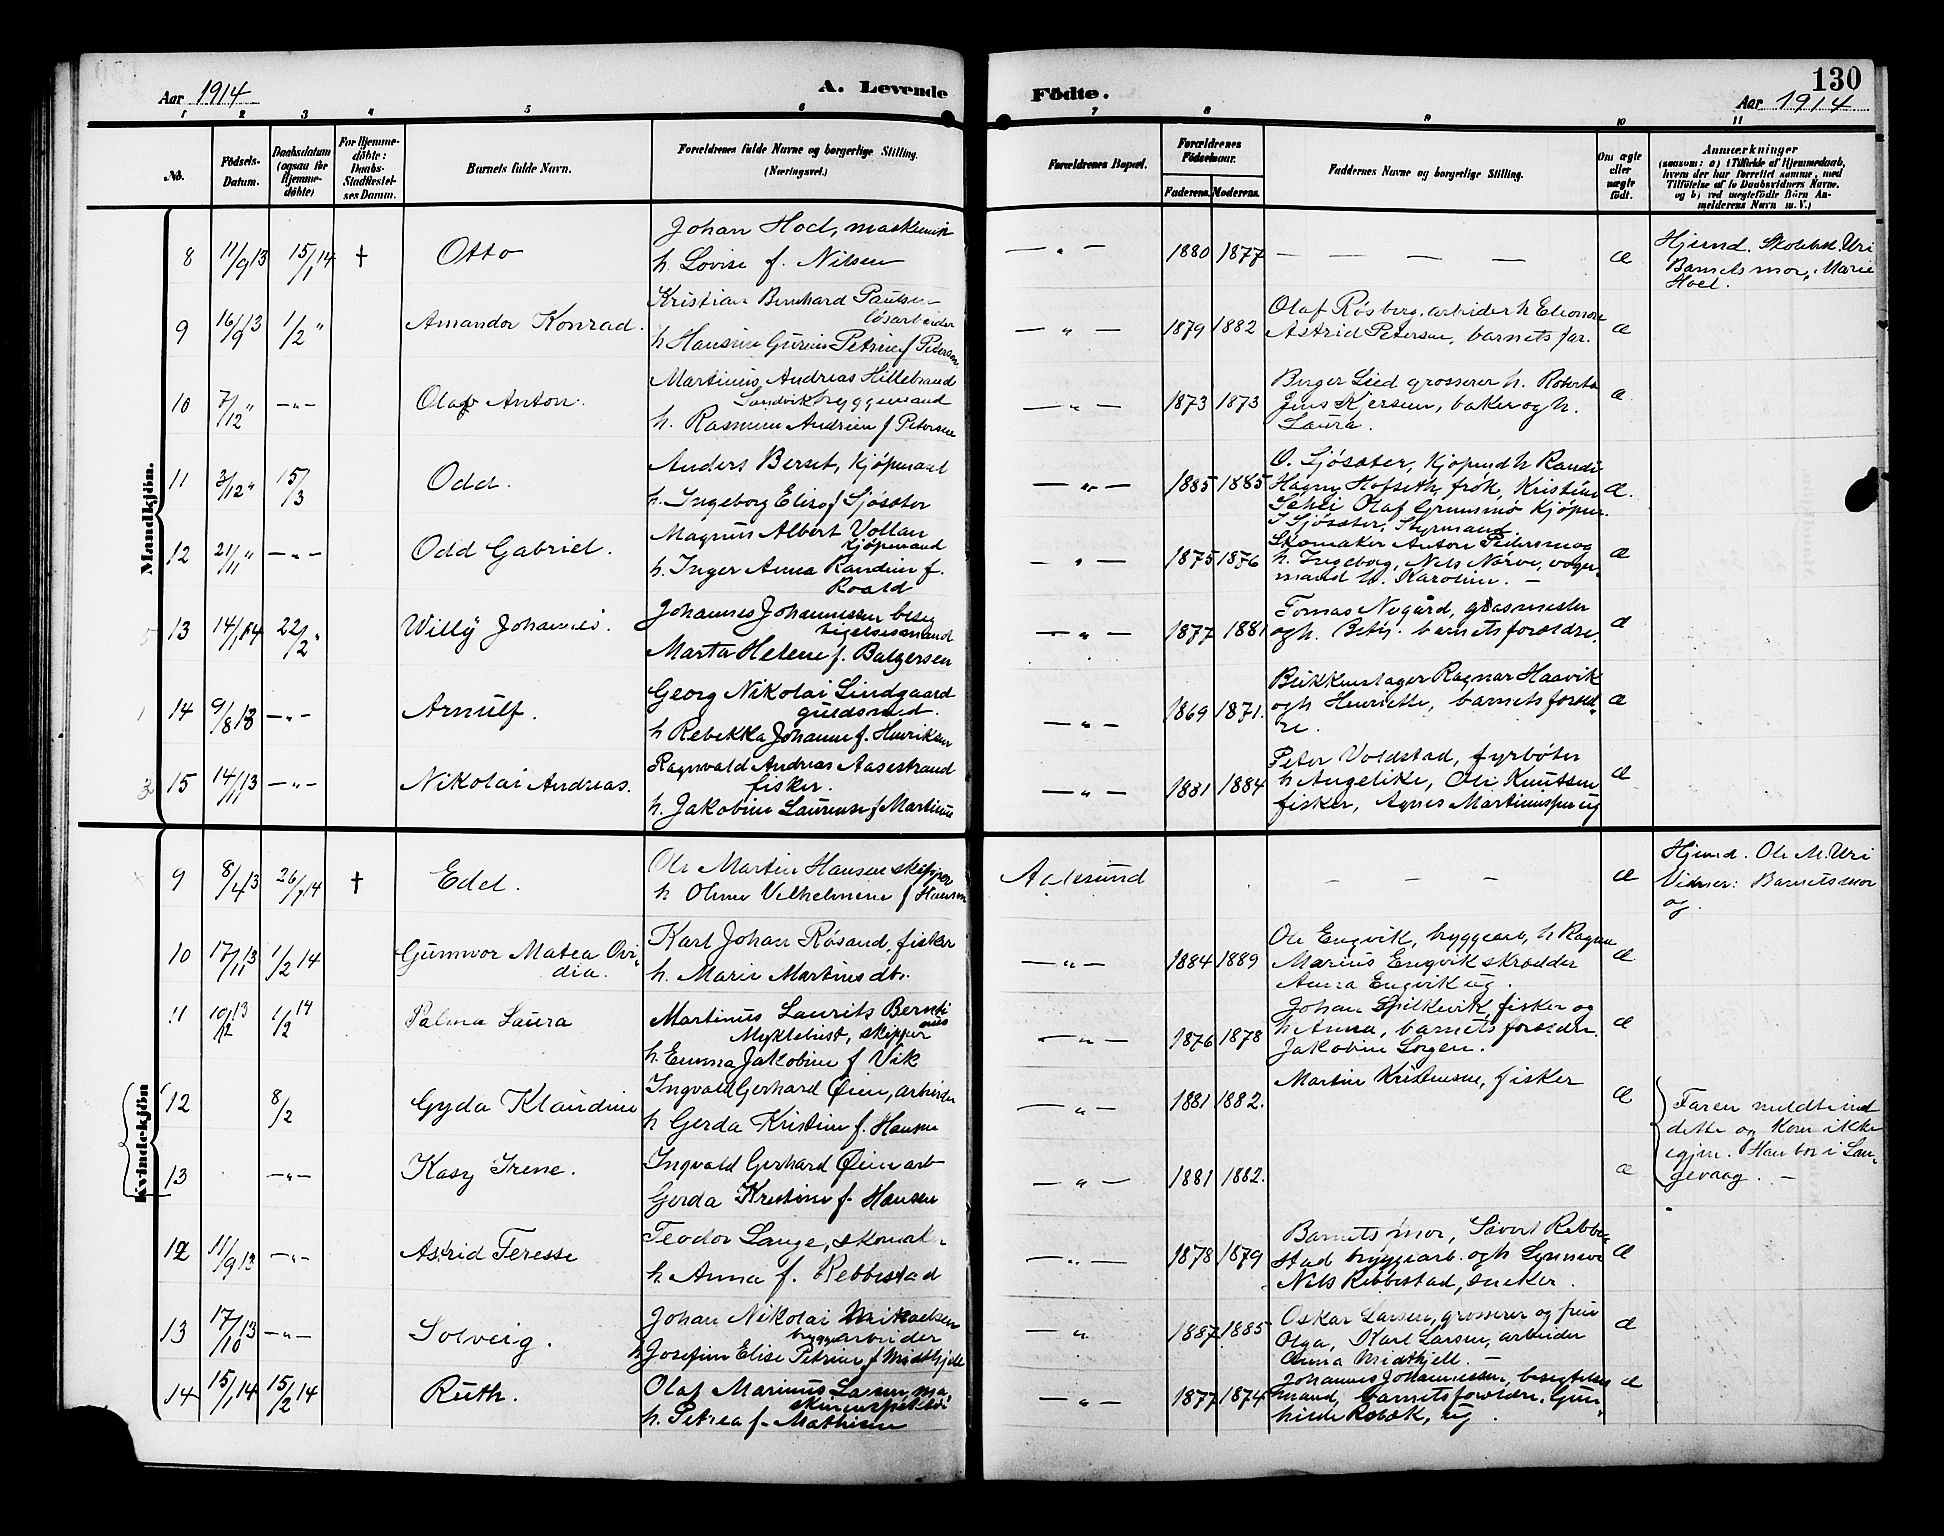 130
Aar 1914 A. Levende Födte. Aar 1914
1 2 3 4 5 6 7 8 9 10 11
No. Födsels-Datum. Daabsdatum (ogsaa for Hjemmedöbte) For Hjemmedöbte: Daabs-Stadfæstelses Datum. Barnets fulde Navn. Forældrenes fulde Navne og borgerlige Stilling. (Næringsvei.) Forældrenes Bopæl. Forældrenes Födselsaar. Faderens. Moderens. Faddernes Navne og borgerlige Stilling. Om ægte eller uægte födt. Anmærkninger
(saasom: a) i Tilfælde af Hjemmedaab, hvem der har forrettet samme, med Tilföielse af to Daabsvidners Navne, og b) ved uægtefödte Börn Anmelderens Navn m. V.)
Mandkjön.
8 11/9 13 15/1 14 † Otto
Johan Hoel, maskinin
h. Lovise f. Nilsen
— " — 1880 1877 — — — — — æ
Hjemd. Skolebst. Uri
Barnets mor, Marie
Hoel.
9 16/9 13 1/2 " Amandor Konrad.
Kristian Bernhard Paulsen
lösarbeider
h Hansine Gurine Petrine f Pedersen
— " — 1879 1882
Olaf Røsberg, arbeider h Eleonore
Astrid Petersen, barnets far.
æ
10 7/12 " — " — Olaf Anton.
Martinus Andreas Hillebrand
Sandvik bryggemand
h. Rasmine Andrine f Petersen
— " — 1873 1873
Berger Lied grosserer h. Roberta
Jens Kjersem, baker og h.
Laura.
æ
11 3/12 " 15/3 Odd.
Anders Berset, Kjøpmand
h. Ingeborg Elise f Sjøsæter
— " — 1885 1885
O. Sjøsæter, Kjøpmd h Randi
Hagny Hofseth, frøk, Kristine
Olaf Grimsmo Kjøpm.
Sjøsæter, Styrmand.
æ.
12 21/11 " — " — Odd Gabriel.
Magnus Albert Vollan
Kjøpmand
h. Inger Anna Randine f.
Roald
— " — 1875 1876
Skomaker Anton Pedersen og
h. Ingeborg, Nils Nørve, vogn-
mand h. Karoline. —
æ
13 14/1 14 22/2 " Willy Johannes.
Johannes Johannessen besig
tigelsesmand
Marta Helene f. Balgersen
— " — 1877 1881
Tomas Nygård, gasmester
og h. Betzy. barnets forældre.
æ
14 9/8 13 — " — Arnulf.
Georg Nikolai Lindgaard
guldsmed.
h Rebekka Johanne f. Henriksen
— " — 1869 1871.
Blikkenslager Ragnar Haavik
og h Henriette, barnets foræl-
re.
æ
15 14/11 13 — " — Nikolai Andreas.
Ragnvald Andreas Aasestrand
fisker.
h. Jakobine Laurense f Martinus
— " — 1881 1884
Peter Voldstad, fyrbøter
h Angelike, Ole Knutsen
fisker, Agnes Martinussen ug
æ
Kvindekjön
9 8/4 13 26/1 14 † Edel.
Ole Martin Hansen skipper
h Oline Vilhelmine f Hansen
Aalesund — — — æ
Hjemd. Ole M. Uri
Vidner: Barnets mor
og.
10 17/11 13 1/2 14 Gunvor Matea Ovi-
dia.
Karl Johan Røsand, fisker
h. Marie Martinusdtr.
— " — 1884 1889
Ole Engvik, bryggearb, h Ragna
Marius Engvik skrædder
Anna Engvik ug.
æ
11 10/12 13 1/2 14 Palma Laura
Martinus Laurits Bernti
nus
Myklebust, skipper
h. Emma Jakobine f. Vik
— " — 1876 1878
Johan Spilkevik, fisker og
h Anna, barnets forældre.
Jakobine Sorgen.
æ
12 8/2 Gyda Klaudine
Ingvald Gerhard Øien, arbeider
h Gerda Kristine f. Hansen
— " — 1881 1882.
Martin Kristensen, fisker
æ
Faren meldte ind
dette og kom ikke
igjen. Han bor i Lan-
gevaag. —
13 — " — Kasy Irene.
Ingvald Gerhard Øien arb
Gerda Kristine f. Hansen
— " — 1881 1882. æ
12 11/9 13 — " — Astrid Teresse
Teodor Lange, skomak.
h Anna f. Rebbestad
— " — 1878 1879
Barnets mor, Sivert Rebbe-
stad bryggearb. og h Synnøve
Nils Rebbestad, snekker.
æ
13 17/10 13 — " — Solveig.
Johan Nikolai Mikaelsen
bryggearbeider
h Josefine Elise Petrine f Midthjell
— " 1887 1885
Oskar Larsen, grosserer og frue
Olga, Karl Larsen, arbeider
Anna Midthjell. —
æ
14 15/1 14 15/2 14 Ruth.
Olaf Marinus Larsen, ma-
skininspektør
h. Petrea f. Mathisen
— " — 1877 1874
Johannes Johannessen, besigtelses
mand, barnets forældre, Gun-
hilde Robæk, ug.
æ